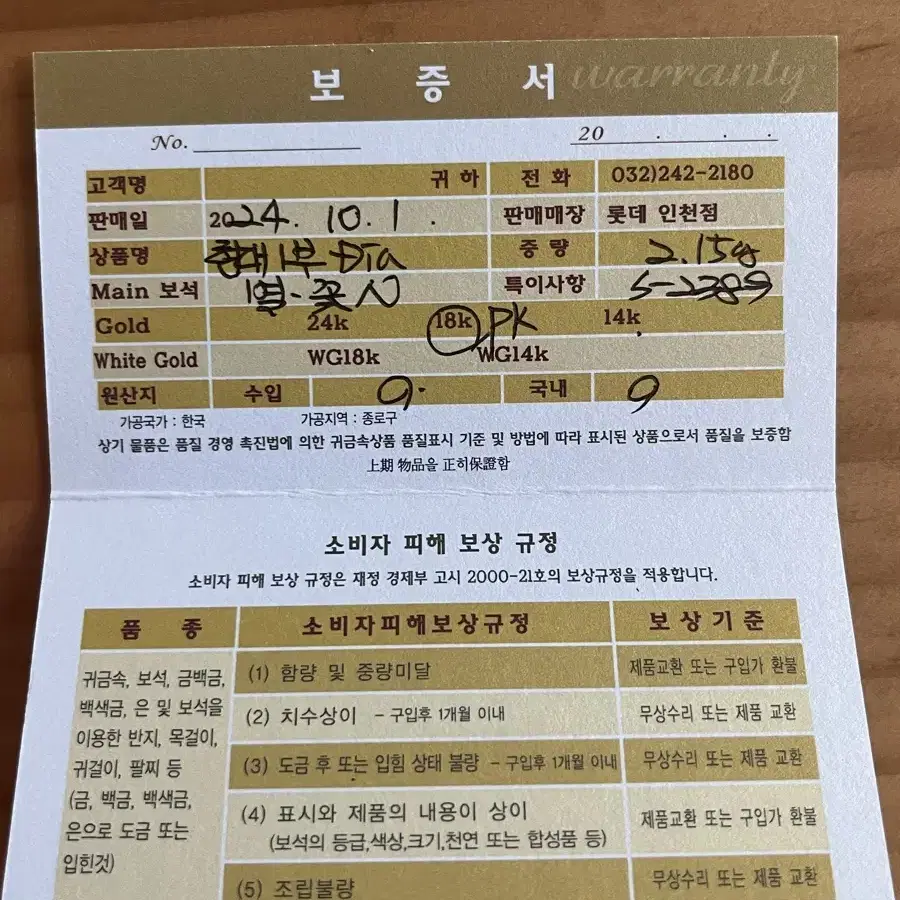 보증서 warranty
No. 20 . . .
고객명 귀하 전화 032)242-2180
판매일 2024. 10. 1. 판매매장 롯데 인천점
상품명 1부 Dia 중량 2.15g
Main 보석 특이사항 S-2389
Gold 24k 18k PK 14k
White Gold WG18k WG14k
원산지 수입 국내
가공국가 : 한국 가공지역 : 종로구
상기 물품은 품질 경영 촉진법에 의한 귀금속상품 품질표시 기준 및 방법에 따라 표시된 상품으로서 품질을 보증함
上期 物品을 正히保證함
소비자 피해 보상 규정
소비자 피해 보상 규정은 재정 경제부 고시 2000-21호의 보상규정을 적용합니다.
품종 소비자피해보상규정 보상기준
귀금속, 보석, 금백금,
백색금, 은 및 보석을
이용한 반지, 목걸이,
귀걸이, 팔찌 등
(금, 백금, 백색금,
은으로 도금 또는
입힌것)
(1) 함량 및 중량미달 제품교환 또는 구입가 환불
(2) 치수상이 - 구입후 1개월 이내 무상수리 또는 제품 교환
(3) 도금 후 또는 입힘 상태 불량 - 구입후 1개월 이내 무상수리 또는 제품 교환
(4) 표시와 제품의 내용이 상이 제품교환 또는 구입가 환불
(보석의 등급,색상,크기,천연 또는 합성품 등)
(5) 조립불량 무상수리 또는 제품 교환